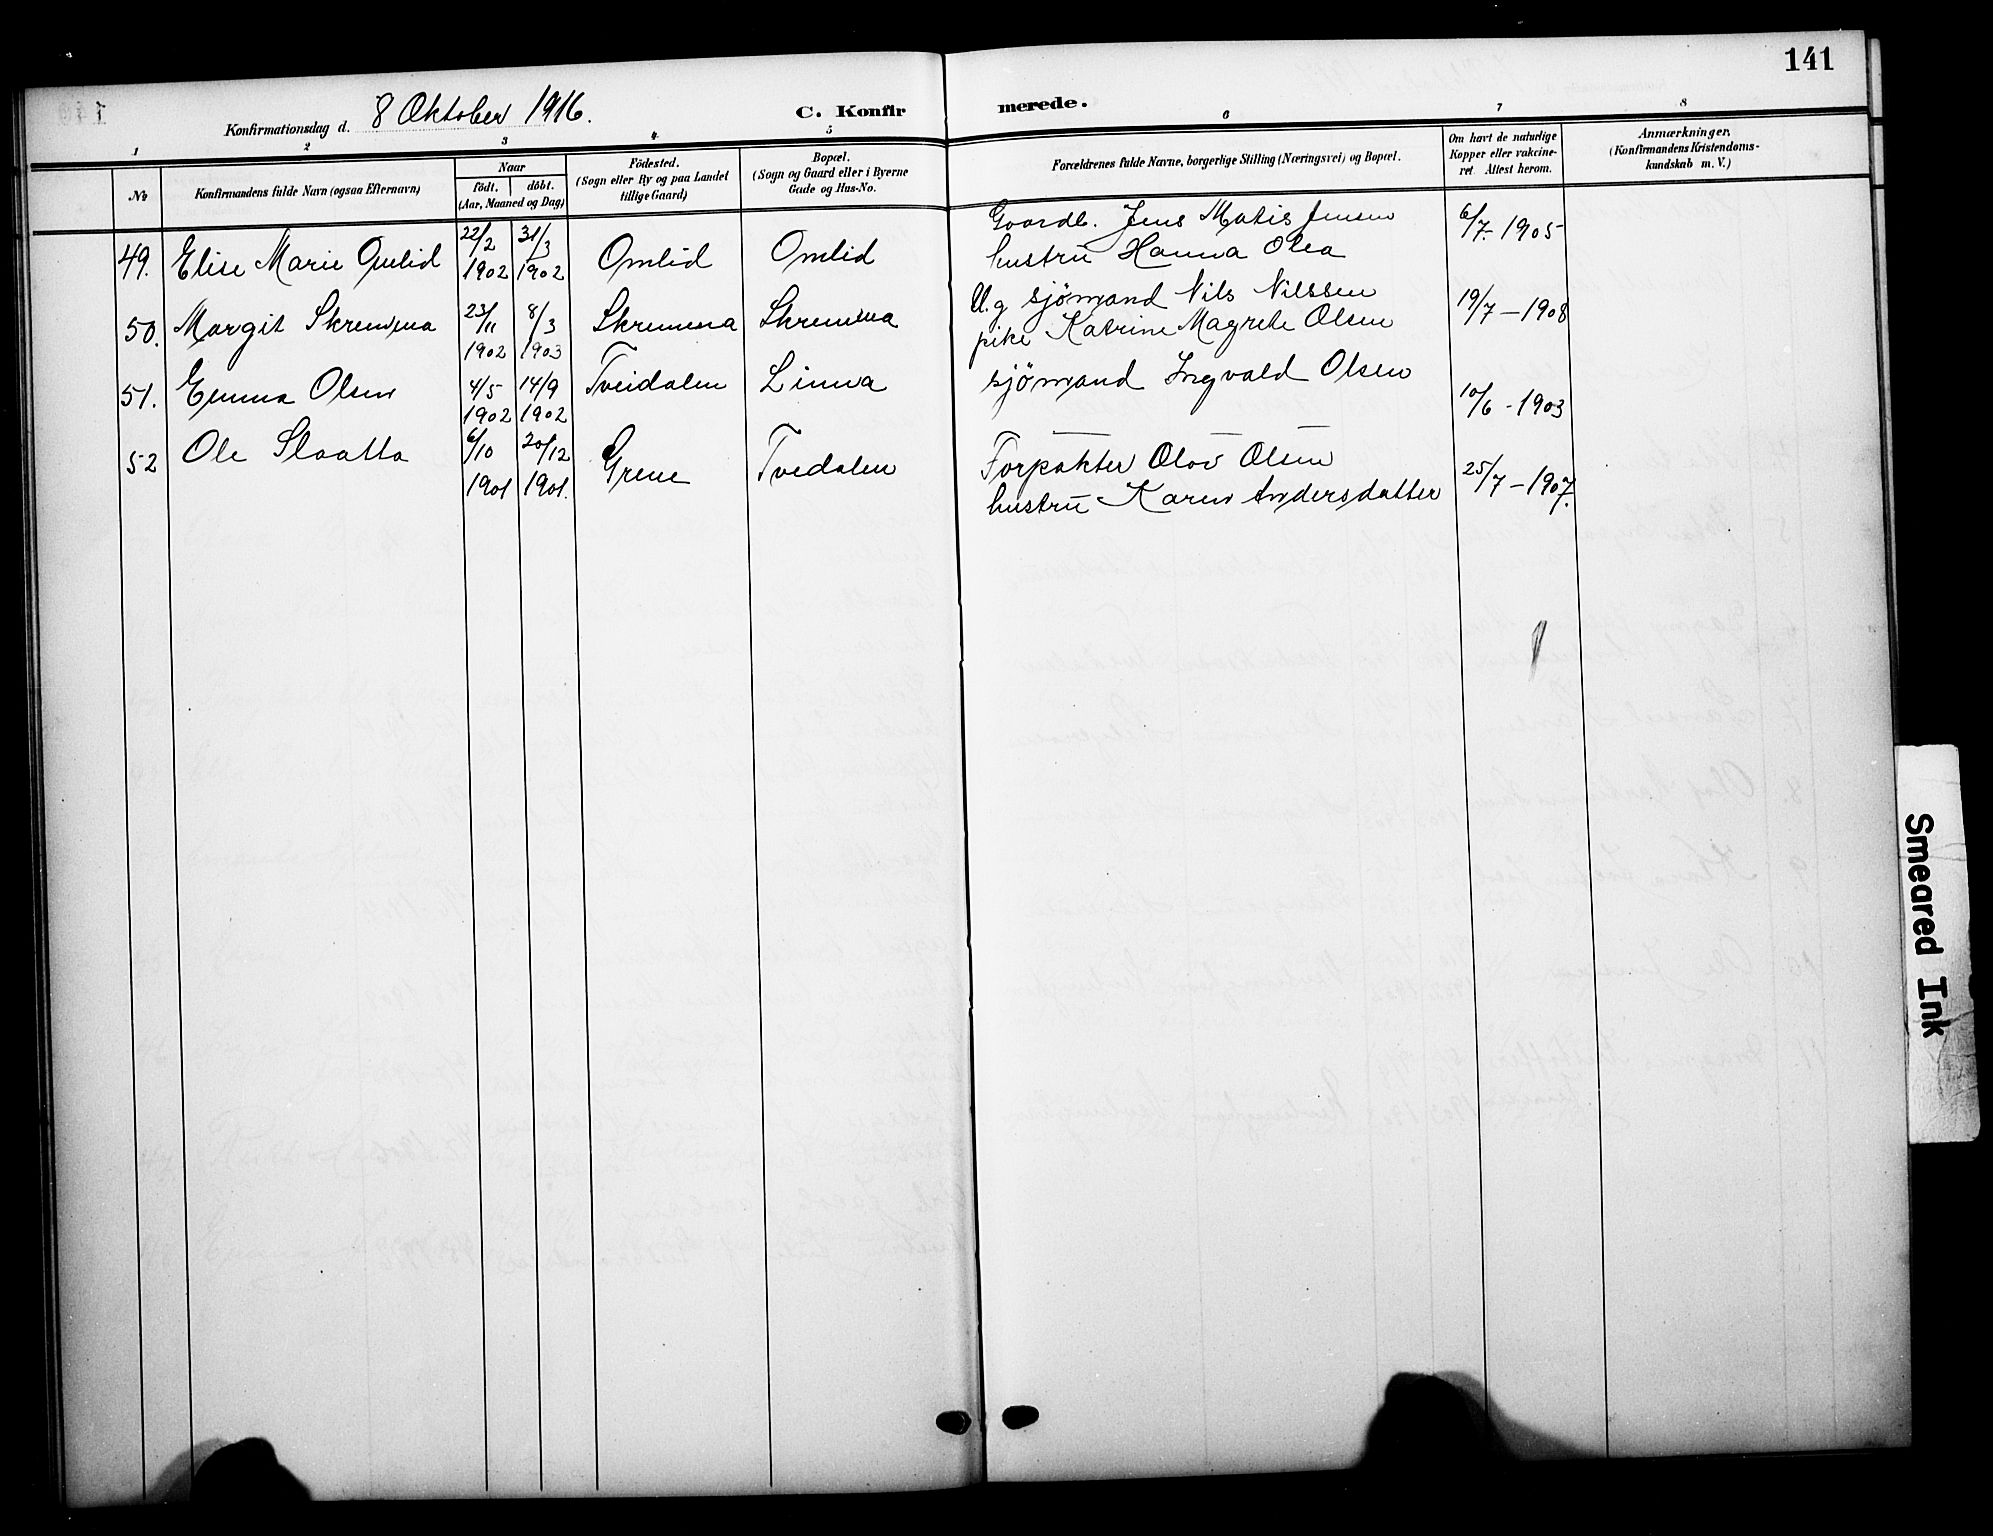 141
Konfirmationsdag d. 8 Oktober 1916.
C. Konfirmerede.
1 2 3 4 5 6 7 8
No.
Konfirmandens fulde Navn (ogsaa Efternavn)
Naar
födt. döbt.
(Aar, Maaned og Dag)
Födested.
(Sogn eller By og paa Landet
tillige Gaard)
Bopæl.
(Sogn og Gaard eller i Byerne
Gade og Hus-No.
Forældrenes fulde Navne, borgerlige Stilling (Næringsvei) og Bopæl.
Om havt de naturlige
Kopper eller vakcine-
ret. Attest herom.
Anmærkninger.
(Konfirmandens Kristendoms-
kundskab m. V.)
49. Elise Marie Omlid 22/2 1902 31/3 1902 Omlid Omlid Gaardb. Jens Matis Jensen
hustru Hanna Olea 6/7 - 1905
50. Margit Skrenna 23/11 1902 8/3 1903 Skrenna Skrenna U.g sjömand Nils Nilssen
pike Katrine Magrete Olsen 19/7 - 1908
51. Emma Olsen 4/5 1902 14/9 1902 Tveidalen Linna sjömand Ingvald Olsen
10/6 - 1903
52 Ole Slaatta 6/10 1901 20/12 1901. Grene Tvedalen Forpakter Olov Olsen
hustru Karen Andersdatter 25/7 - 1907.
Smeared Ink